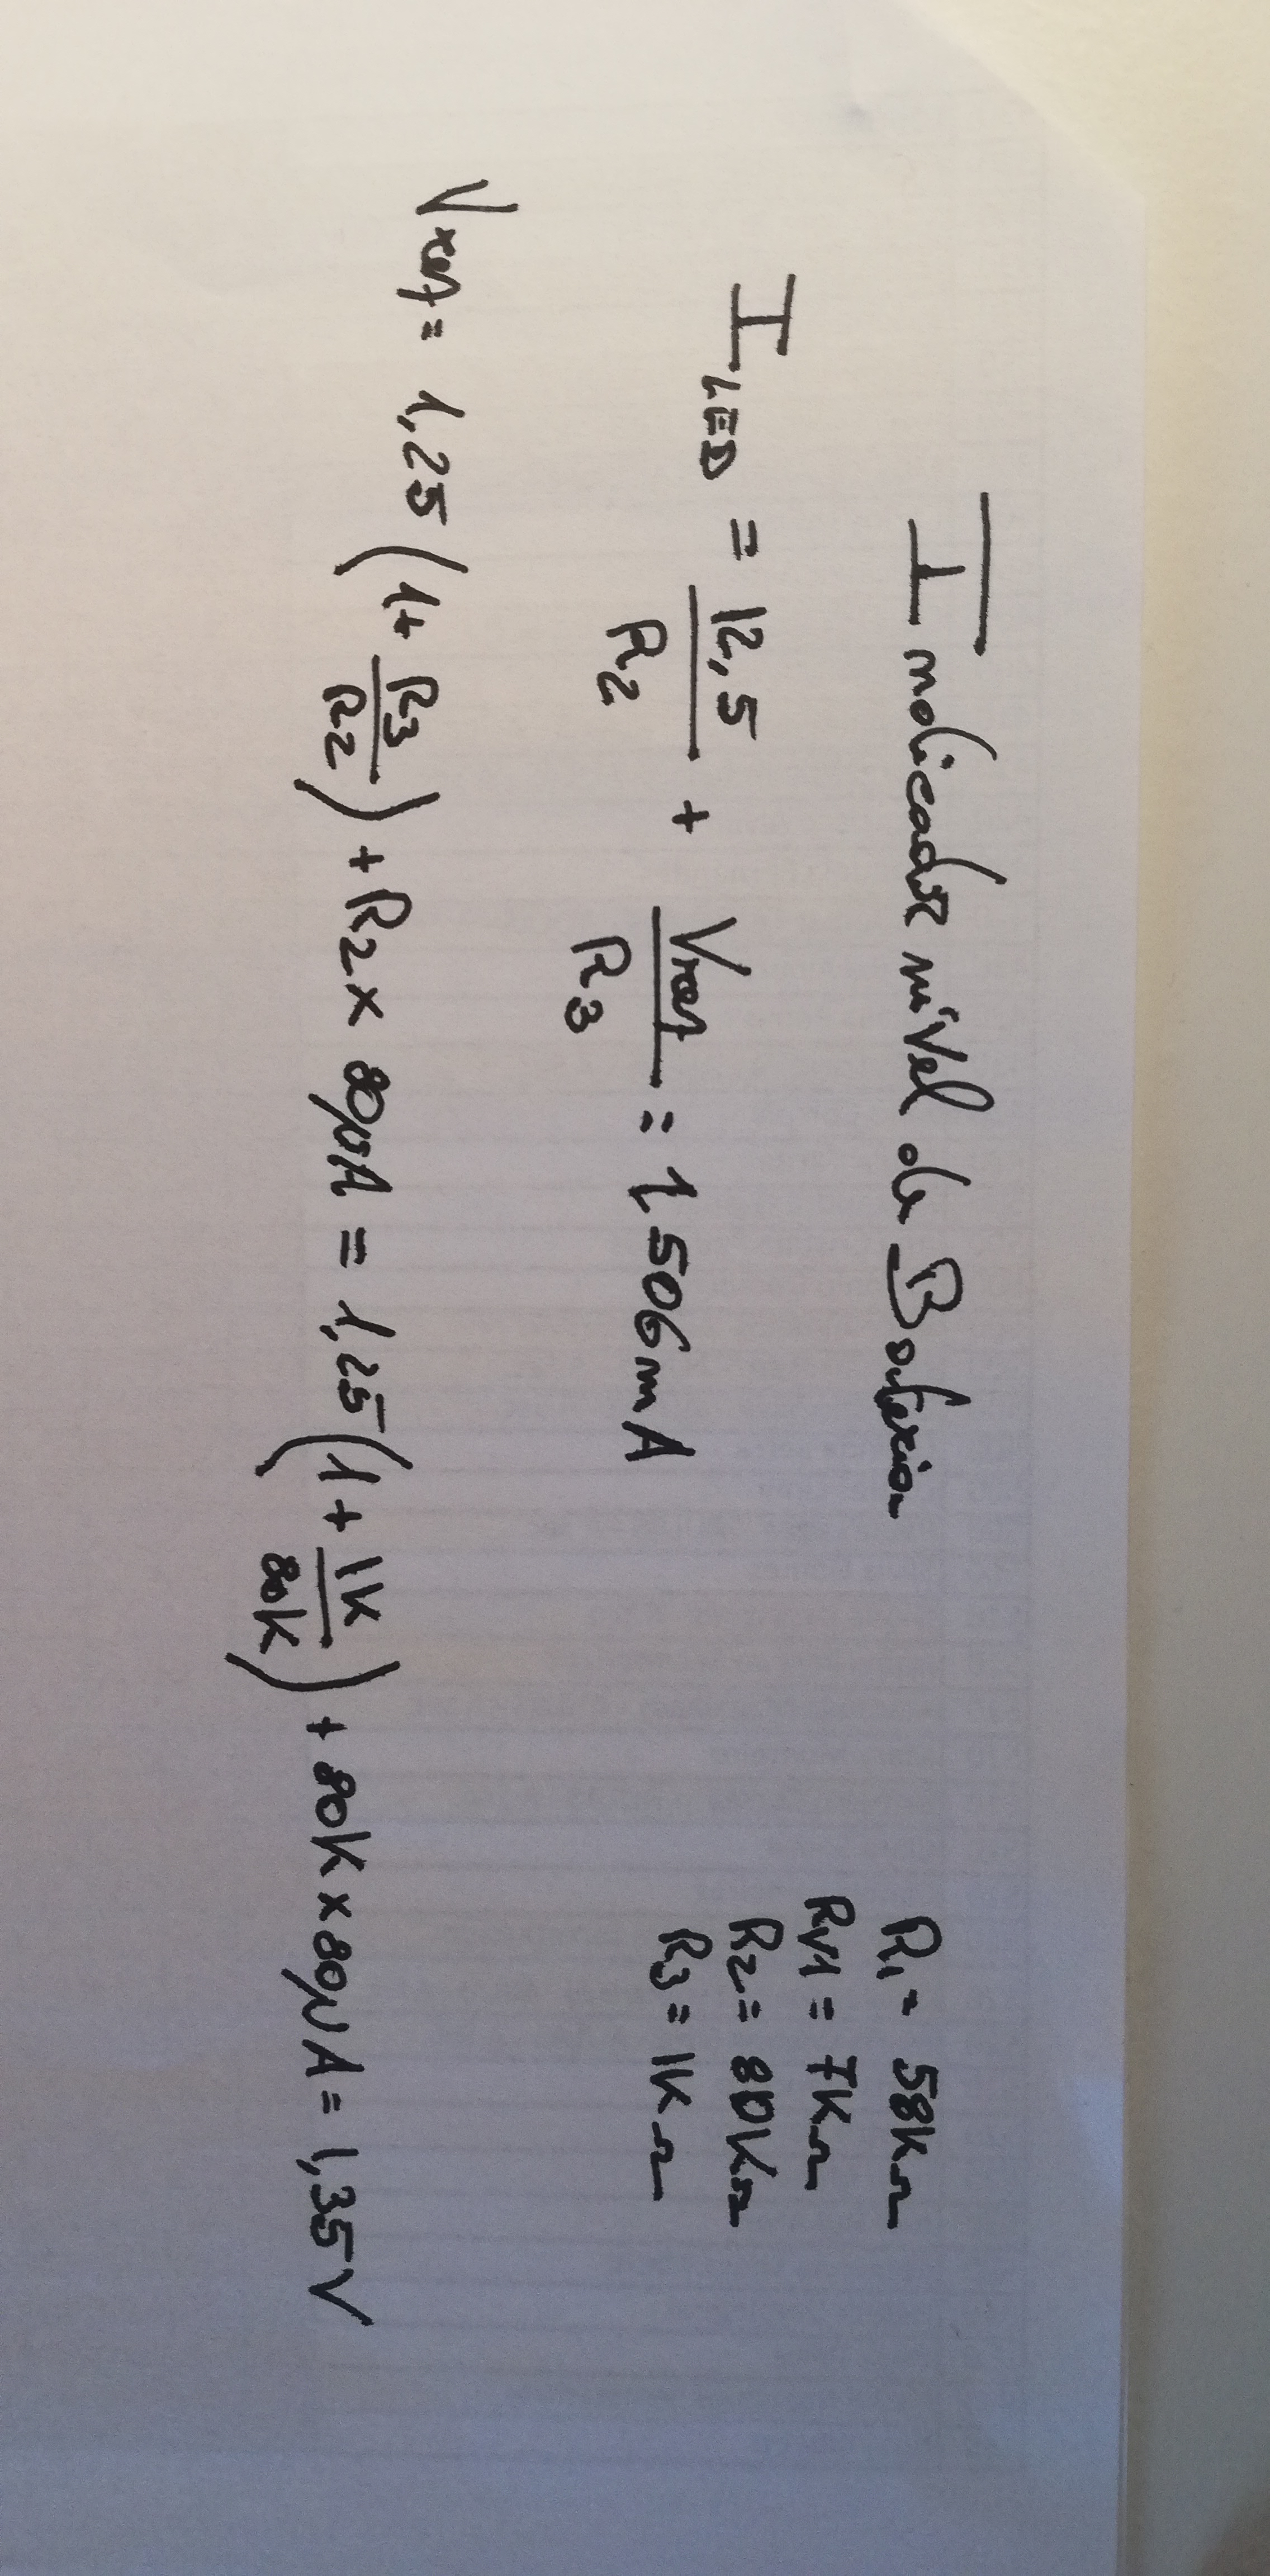 Indicador nível de Bateria
R1 = 58KΩ
RV1 = 7KΩ
R2 = 80KΩ
R3 = 1KΩ
I LED = 12,5/R2 + Vref/R3 = 1506mA
Vref = 1,25 (1+ R3/R2) + R2 x 80µA = 1,25 (1 + 1K/80K) + 80K x 80µA = 1,35V